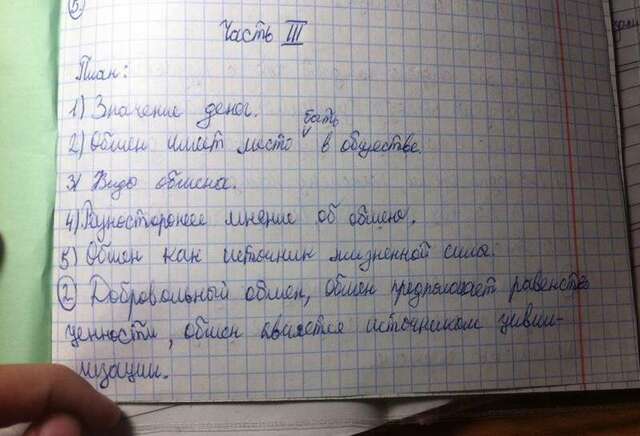 5.
Часть III
План:
1) Значение денег.
быть
2) Обмен имеет место в обществе.
3) Виды обмена.
4) Разностороннее мнение об обмене.
5) Обмен как источник жизненной силы.
2 Добровольный обмен, обмен предполагает равенство
ценности, обмен является источником циви-
лизации.